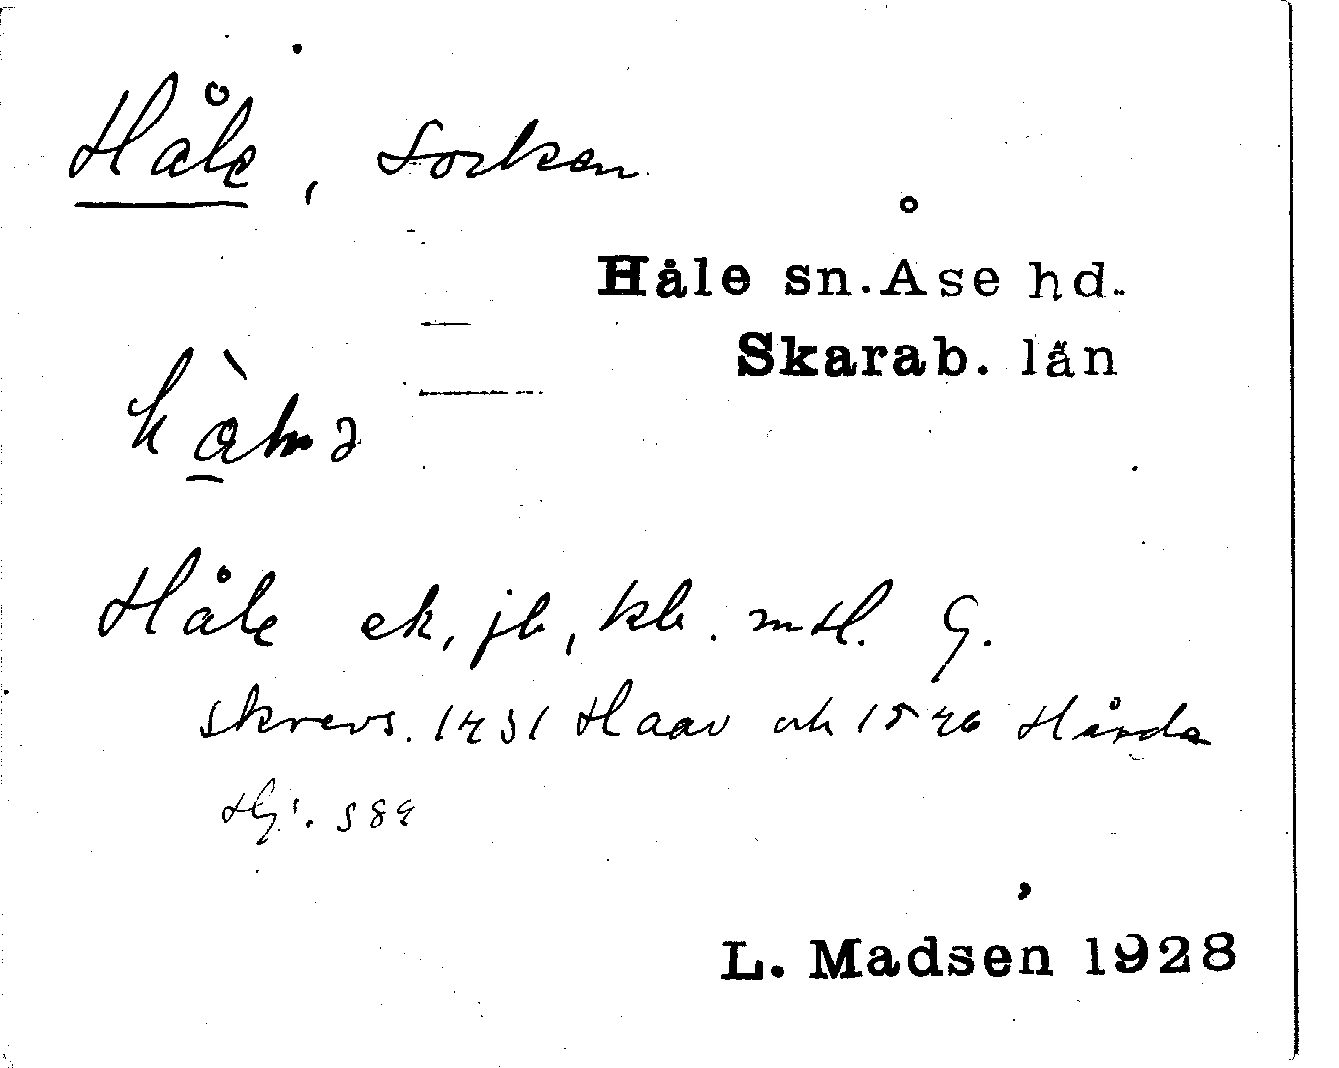 Håle, socken
Håle sn. Åse hd.
Skarab. län
Håle ek, jb, kb. mtl. G.
skrevs. 1431 Haav och 1546 Hårda
L. Madsen 1928